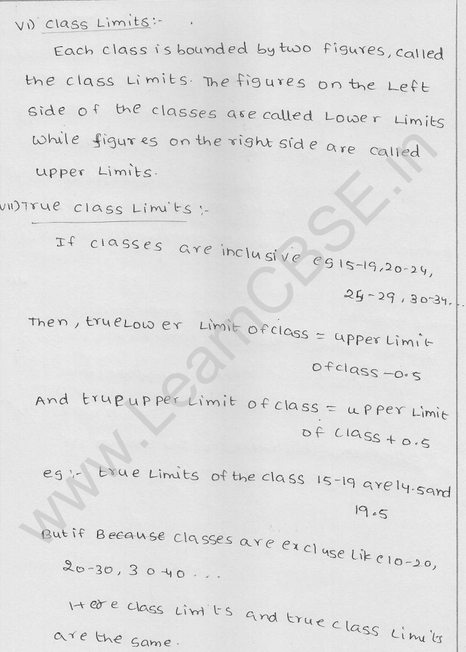 vi) Class Limits:-
Each class is bounded by two figures, called
the class Limits. The figures on the Left
side of the classes are called Lower Limits
while figures on the right side are called
upper Limits.
vii) True class Limits :-
If classes are inclusive eg 15-19, 20-24,
25-29, 30-34....
Then, true Lower Limit of class = upper Limit
of class - 0.5
And true upper Limit of class = upper Limit
of class + 0.5
eg :- true Limits of the class 15-19 are 14.5 and
19.5
But if Because classes are excluse Like 10-20,
20-30, 30 40 ...
Here class Limits and true class Limits
are the same.
www.LearnCBSE.in